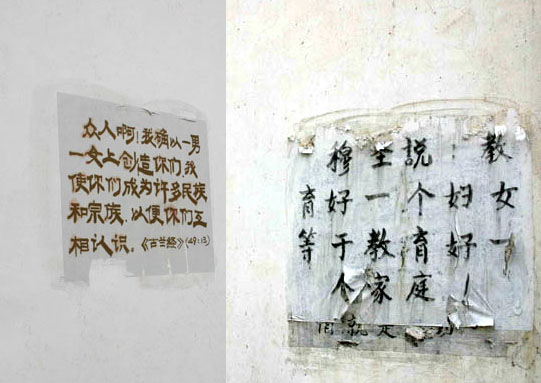 众人啊!我确以一男
一女上创造你们,我
使你们成为许多民族
和宗族,以便你们互
相认识.《古兰经》(49:13)
穆圣説:教
育好一个妇女
等于教育好一
个家庭!